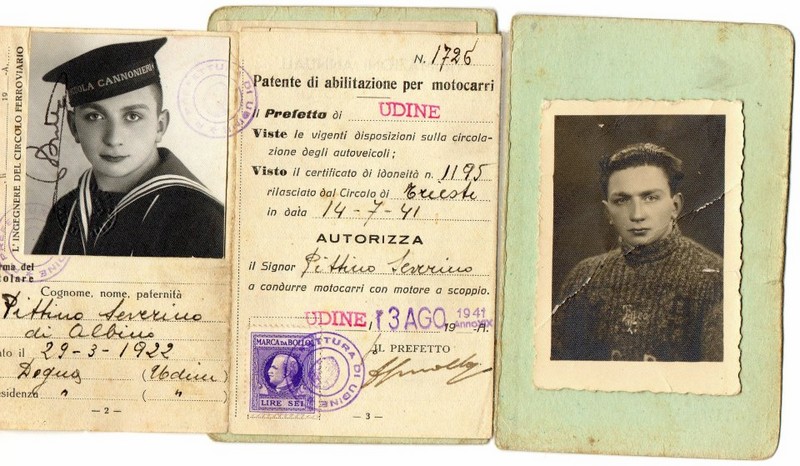 L'INGEGNERE DEL CIRCOLO FERROVIARIO
19
SCUOLA CANNONIERI
PREFETTURA DI UDINE
rma del
tolare
Cognome, nome, paternità
Pittino Severino
di Albino
ato il 29-3-1922
Dogna (Udine)
esidenza " ( " )
— 2 —
N. 1725
Patente di abilitazione per motocarri
Il Prefetto di UDINE
Viste le vigenti disposizioni sulla circola-
zione degli autoveicoli;
Visto il certificato di idoneità n. 1195
rilasciato dal Circolo di Trieste
in data 14-7-41
AUTORIZZA
il Signor Pittino Severino
a condurre motocarri con motore a scoppio.
UDINE, 13 AGO. 1941
Anno XIX
IL PREFETTO
MARCA DA BOLLO
LIRE SEI
PREFETTURA DI UDINE
— 3 —